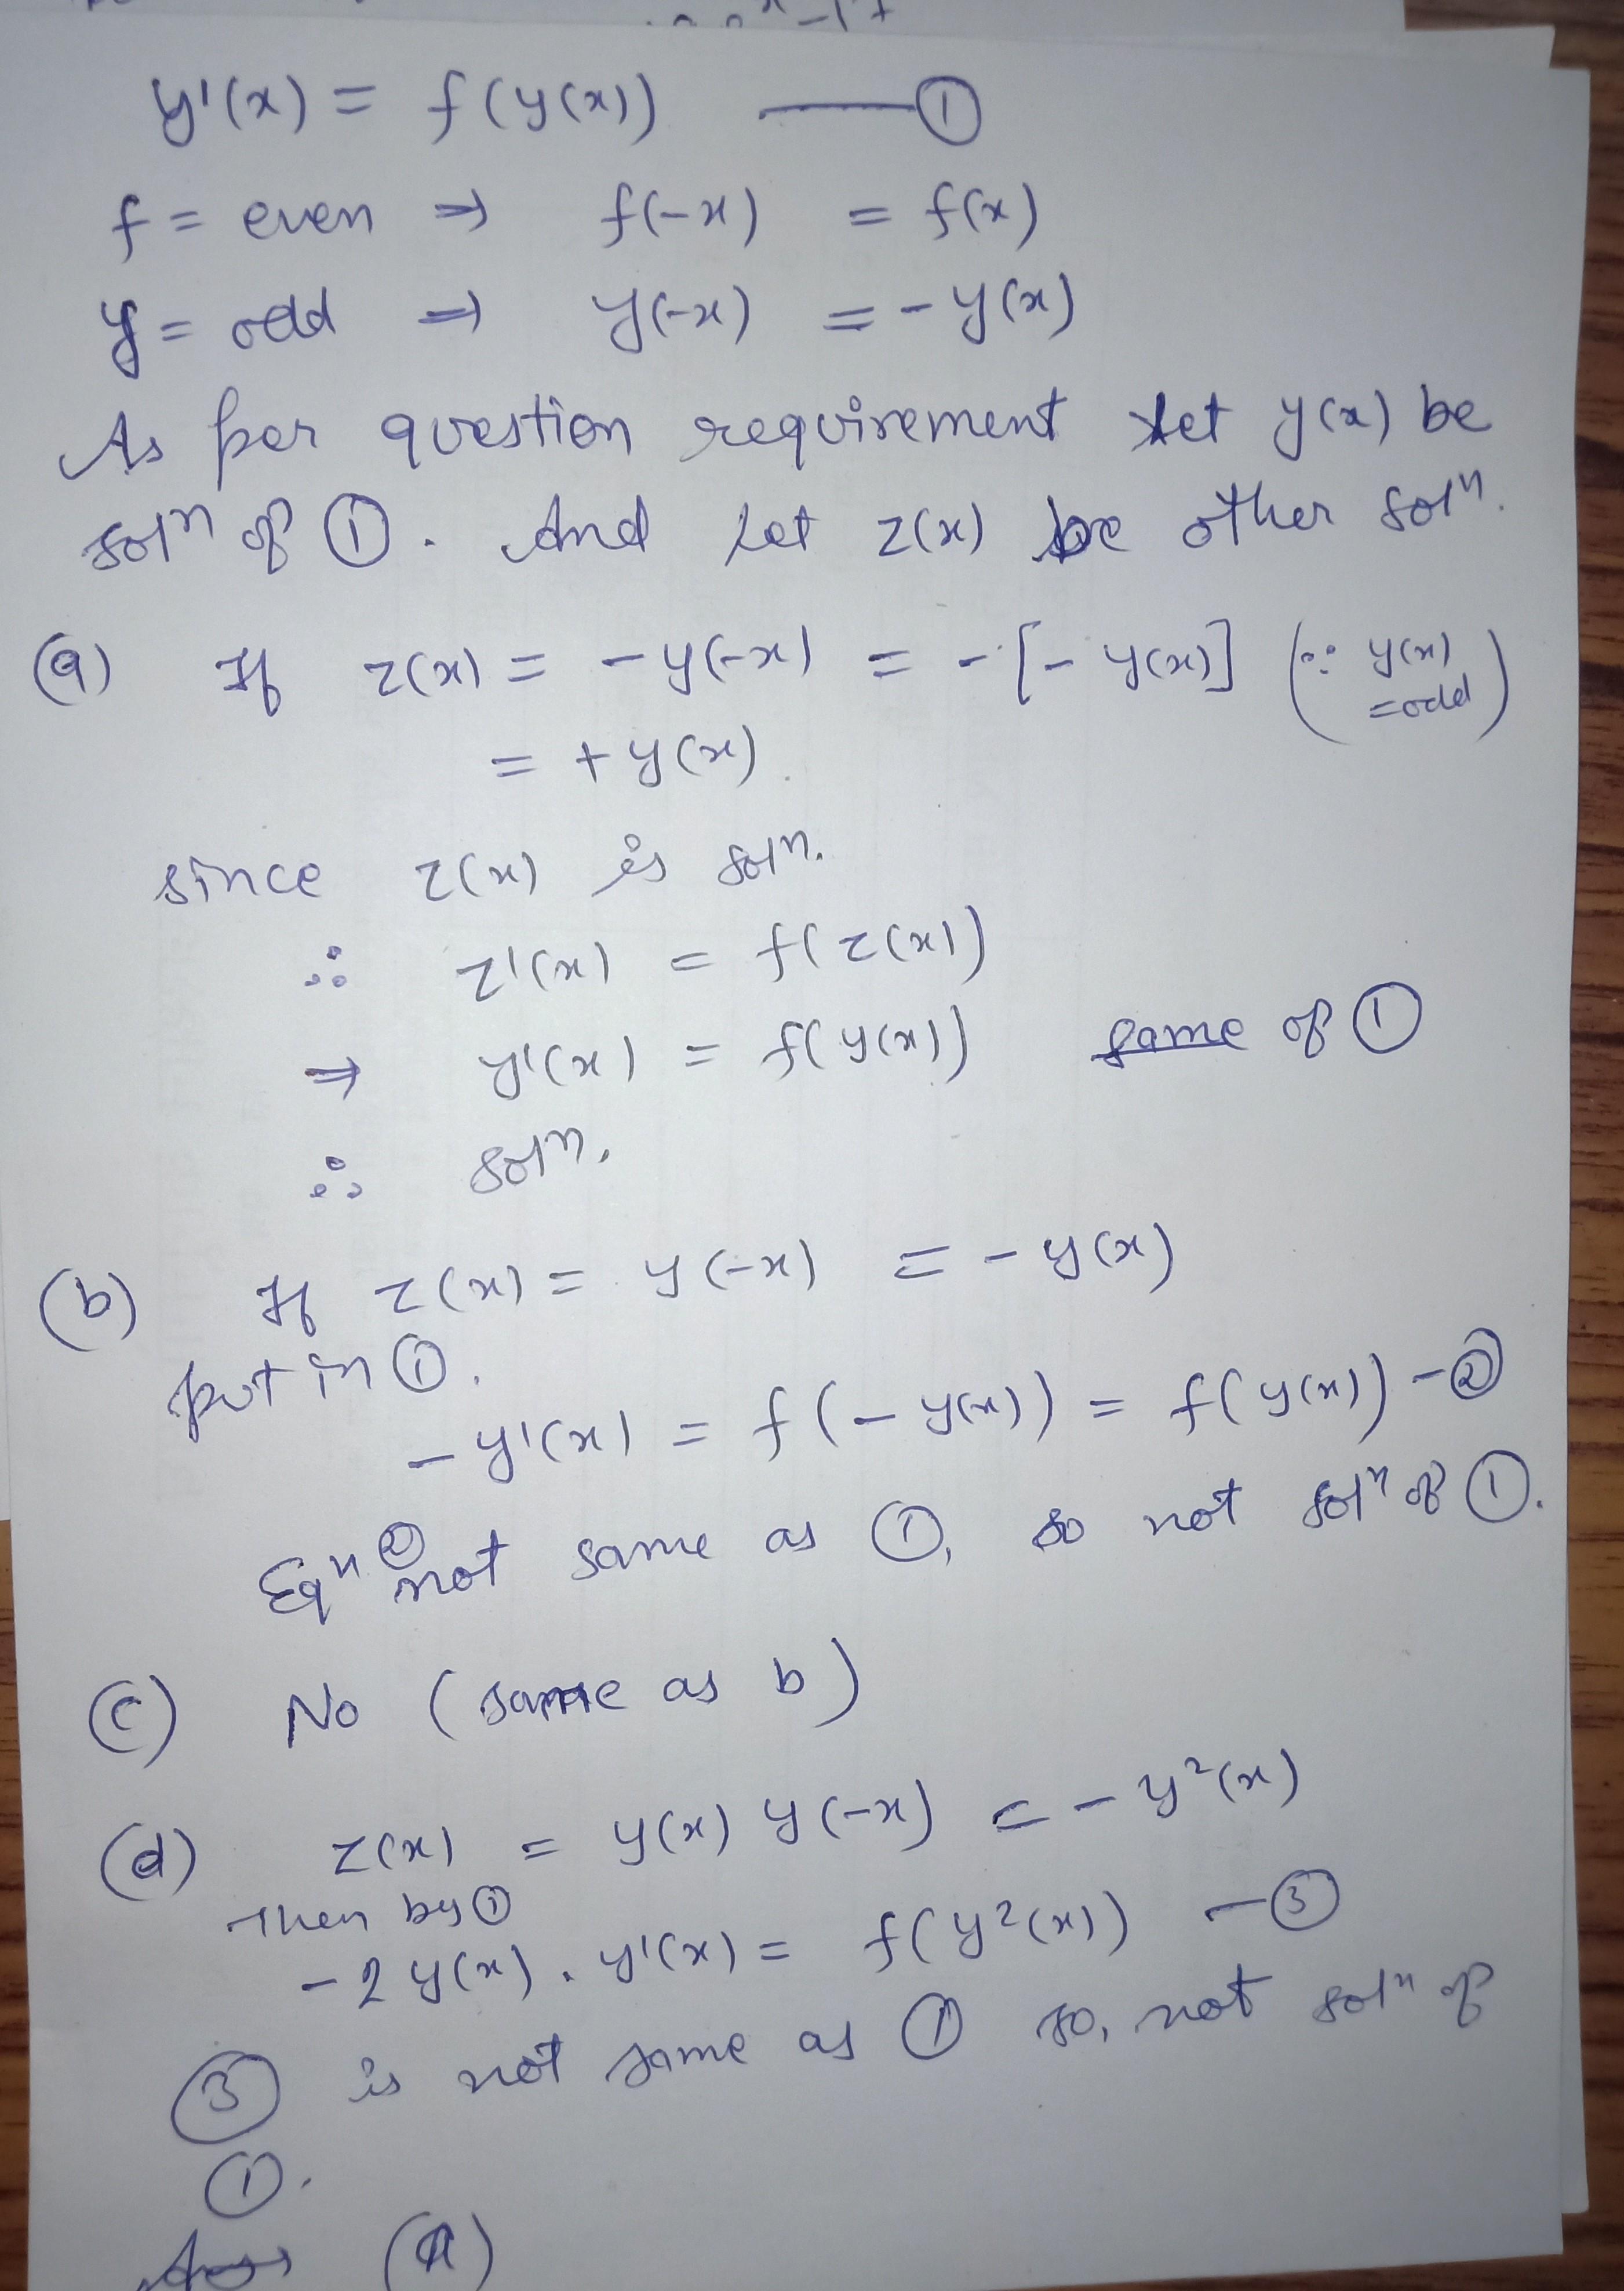 y'(x) = f(y(x)) —— ①
f = even ⇒ f(-x) = f(x)
y = odd ⇒ y(-x) = -y(x)
As per question requirement let y(x) be
solⁿ of ①. And let z(x) be other solⁿ.
(a) If z(x) = -y(-x) = -[-y(x)] (∵ y(x) = odd)
= +y(x).
since z(x) is solⁿ.
∴ z'(x) = f(z(x))
⇒ y'(x) = f(y(x)) same of ①
∴ solⁿ.
(b) If z(x) = y(-x) = -y(x)
put in ①.
-y'(x) = f(-y(x)) = f(y(x)) -②
Eqⁿ ② not same as ①, so not solⁿ of ①.
(c) No (same as b)
(d) z(x) = y(x) y(-x) = -y²(x)
Then by ①
-2y(x).y'(x) = f(y²(x)) -③
③ is not same as ① so, not solⁿ of
①.
Ans (a)